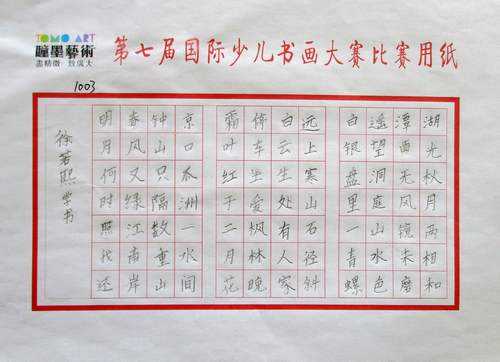 TOMO ART
墨藝術
第七届国际少儿书画大赛比赛用纸
1003
湖光秋月两相和
潭面无风镜未磨
遥望洞庭山水色
白银盘里一青螺
远上寒山石径斜
白云生处有人家
停车坐爱枫林晚
霜叶红于二月花
京口瓜洲一水间
钟山只隔数重山
春风又绿江南岸
明月何时照我还
徐若熙学书